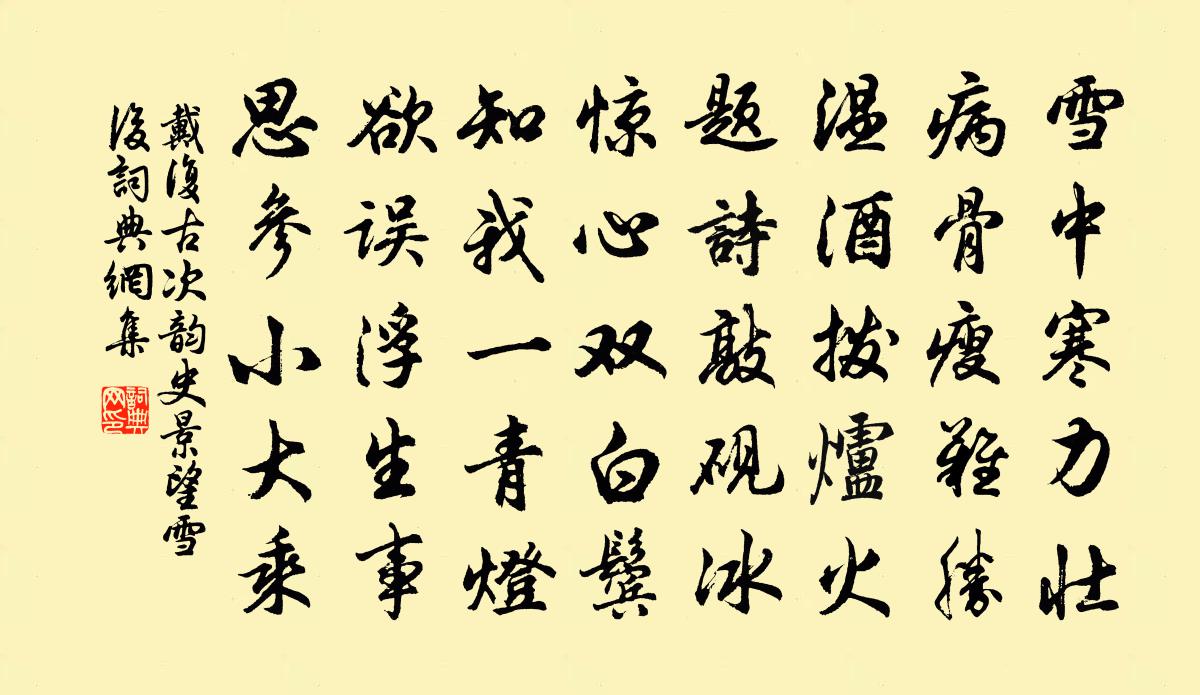 雪中寒力壮
病骨瘦難勝
温酒拨爐火
题詩敲砚冰
惊心双白鬓
知我一青燈
欲误浮生事
思参小大乘
戴復古次韵史景望雪
後詞典網集
詞典
网印